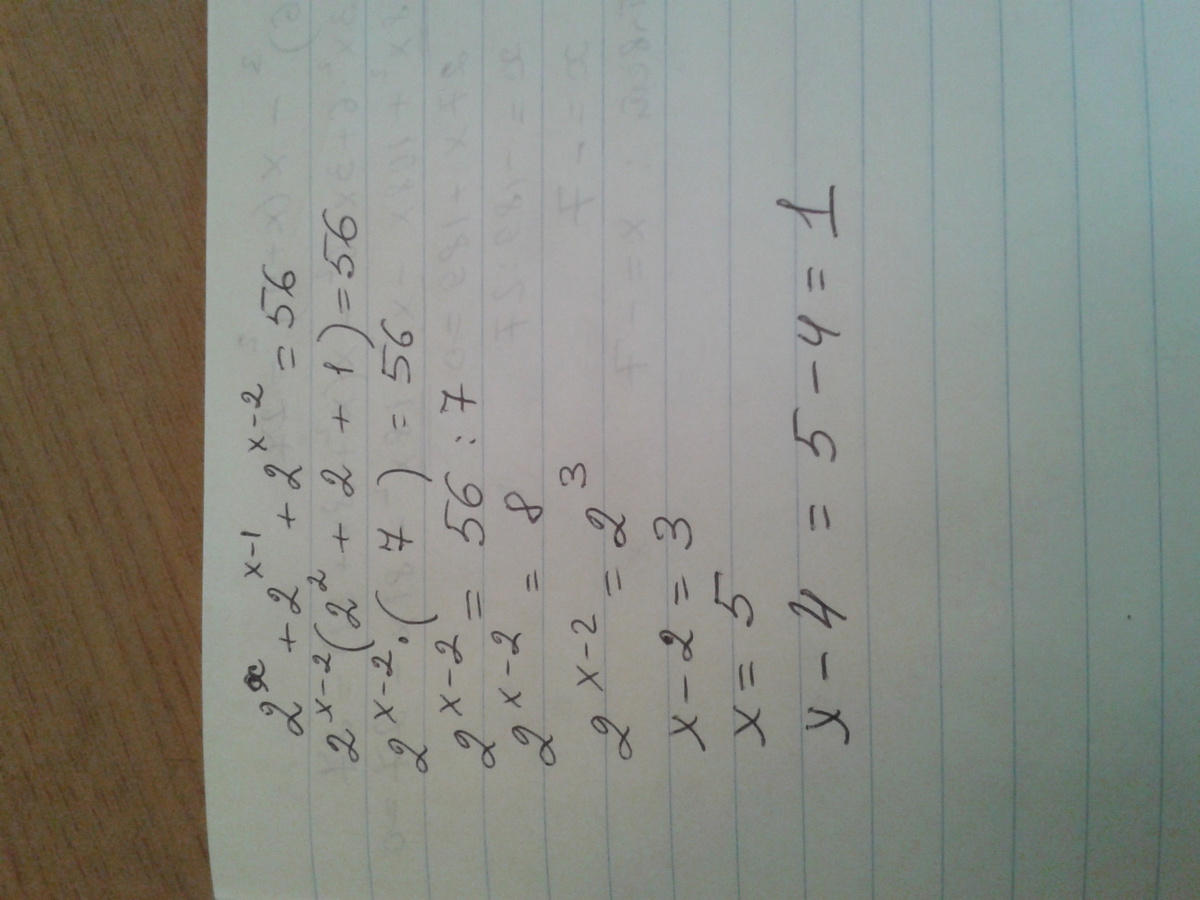 2^x + 2^{x-1} + 2^{x-2} = 56
2^{x-2}(2^2 + 2 + 1) = 56
2^{x-2} · (7) = 56
2^{x-2} = 56 : 7
2^{x-2} = 8
2^{x-2} = 2^3
x - 2 = 3
x = 5
x - 4 = 5 - 4 = 1